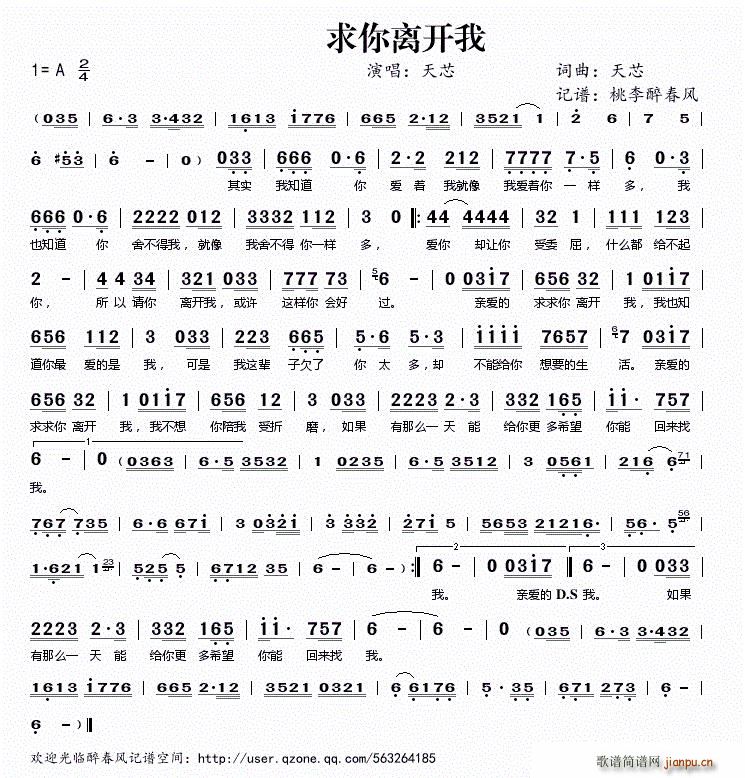 求你离开我
1= A 2/4 演唱：天芯 词曲：天芯
记谱：桃李醉春风
（035 | 6·3 3·432 | 1613 i776 | 665 2·12 | 3521 1 | 2 6 | 7 5 |
6 #53 | 6 - | 0） 033 | 666 0·6 | 2·2 212 | 7777 7·5 | 6 0·3 |
其实 我知道 你 爱着 我就像 我爱着你 一样 多， 我
666 0·6 | 2222 012 | 3332 112 | 3 0 |: 44 4444 | 32 1 | 111 123 |
也知道 你 舍不得我，就像 我舍不得 你一样 多， 爱你 却让你 受委 屈，什么都 给不起
2 - | 4 4 34 | 321 033 | 777 73 | 5 6 - | 0 03i7 | 656 32 | 1 01i7 |
你， 所以请你 离开我，或许 这样你 会好 过。 亲爱的 求求你 离开 我，我也知
656 112 | 3 033 | 223 665 | 5·6 5·3 | iiii 7657 | 6 7 03i7 |
道你最 爱的是 我，可是 我这辈 子欠了 你 太 多，却 不能给你 想要的生 活。亲爱的
656 32 | 1 01i7 | 656 12 | 3 033 | 2223 2·3 | 332 165 | ii· 757 |
求求你 离开 我，我不想 你陪我 受折 磨，如果 有那么一 天能 给你更 多希望 你能 回来找
1
6 - | 0 （0363 | 6·5 3532 | 1 0235 | 6·5 3512 | 3 0561 | 216 6 71 |
我。
767 735 | 6·6 67i | 3 032i | 3 332 | 27i 5 | 5653 21216· | 56· 5 56 |
1·621 1 23 | 525 5 | 6712 35 | 6 - | 6 - ）:| 2 6 - | 0 03i7 | 3 6 - | 0 033 |
我。 亲爱的 D.S 我。 如果
2223 2·3 | 332 165 | i i· 757 | 6 - | 6 - | 0 （035 | 6·3 3·432 |
有那么一 天能 给你更 多希望 你能 回来找 我。
1613 i776 | 665 2·12 | 3521 0321 | 6 6176 | 5·35 | 671 273 | 6 - |
6 - ）||
欢迎光临醉春风记谱空间：http://user.qzone.qq.com/563264185
歌谱简谱网
jianpu.cn